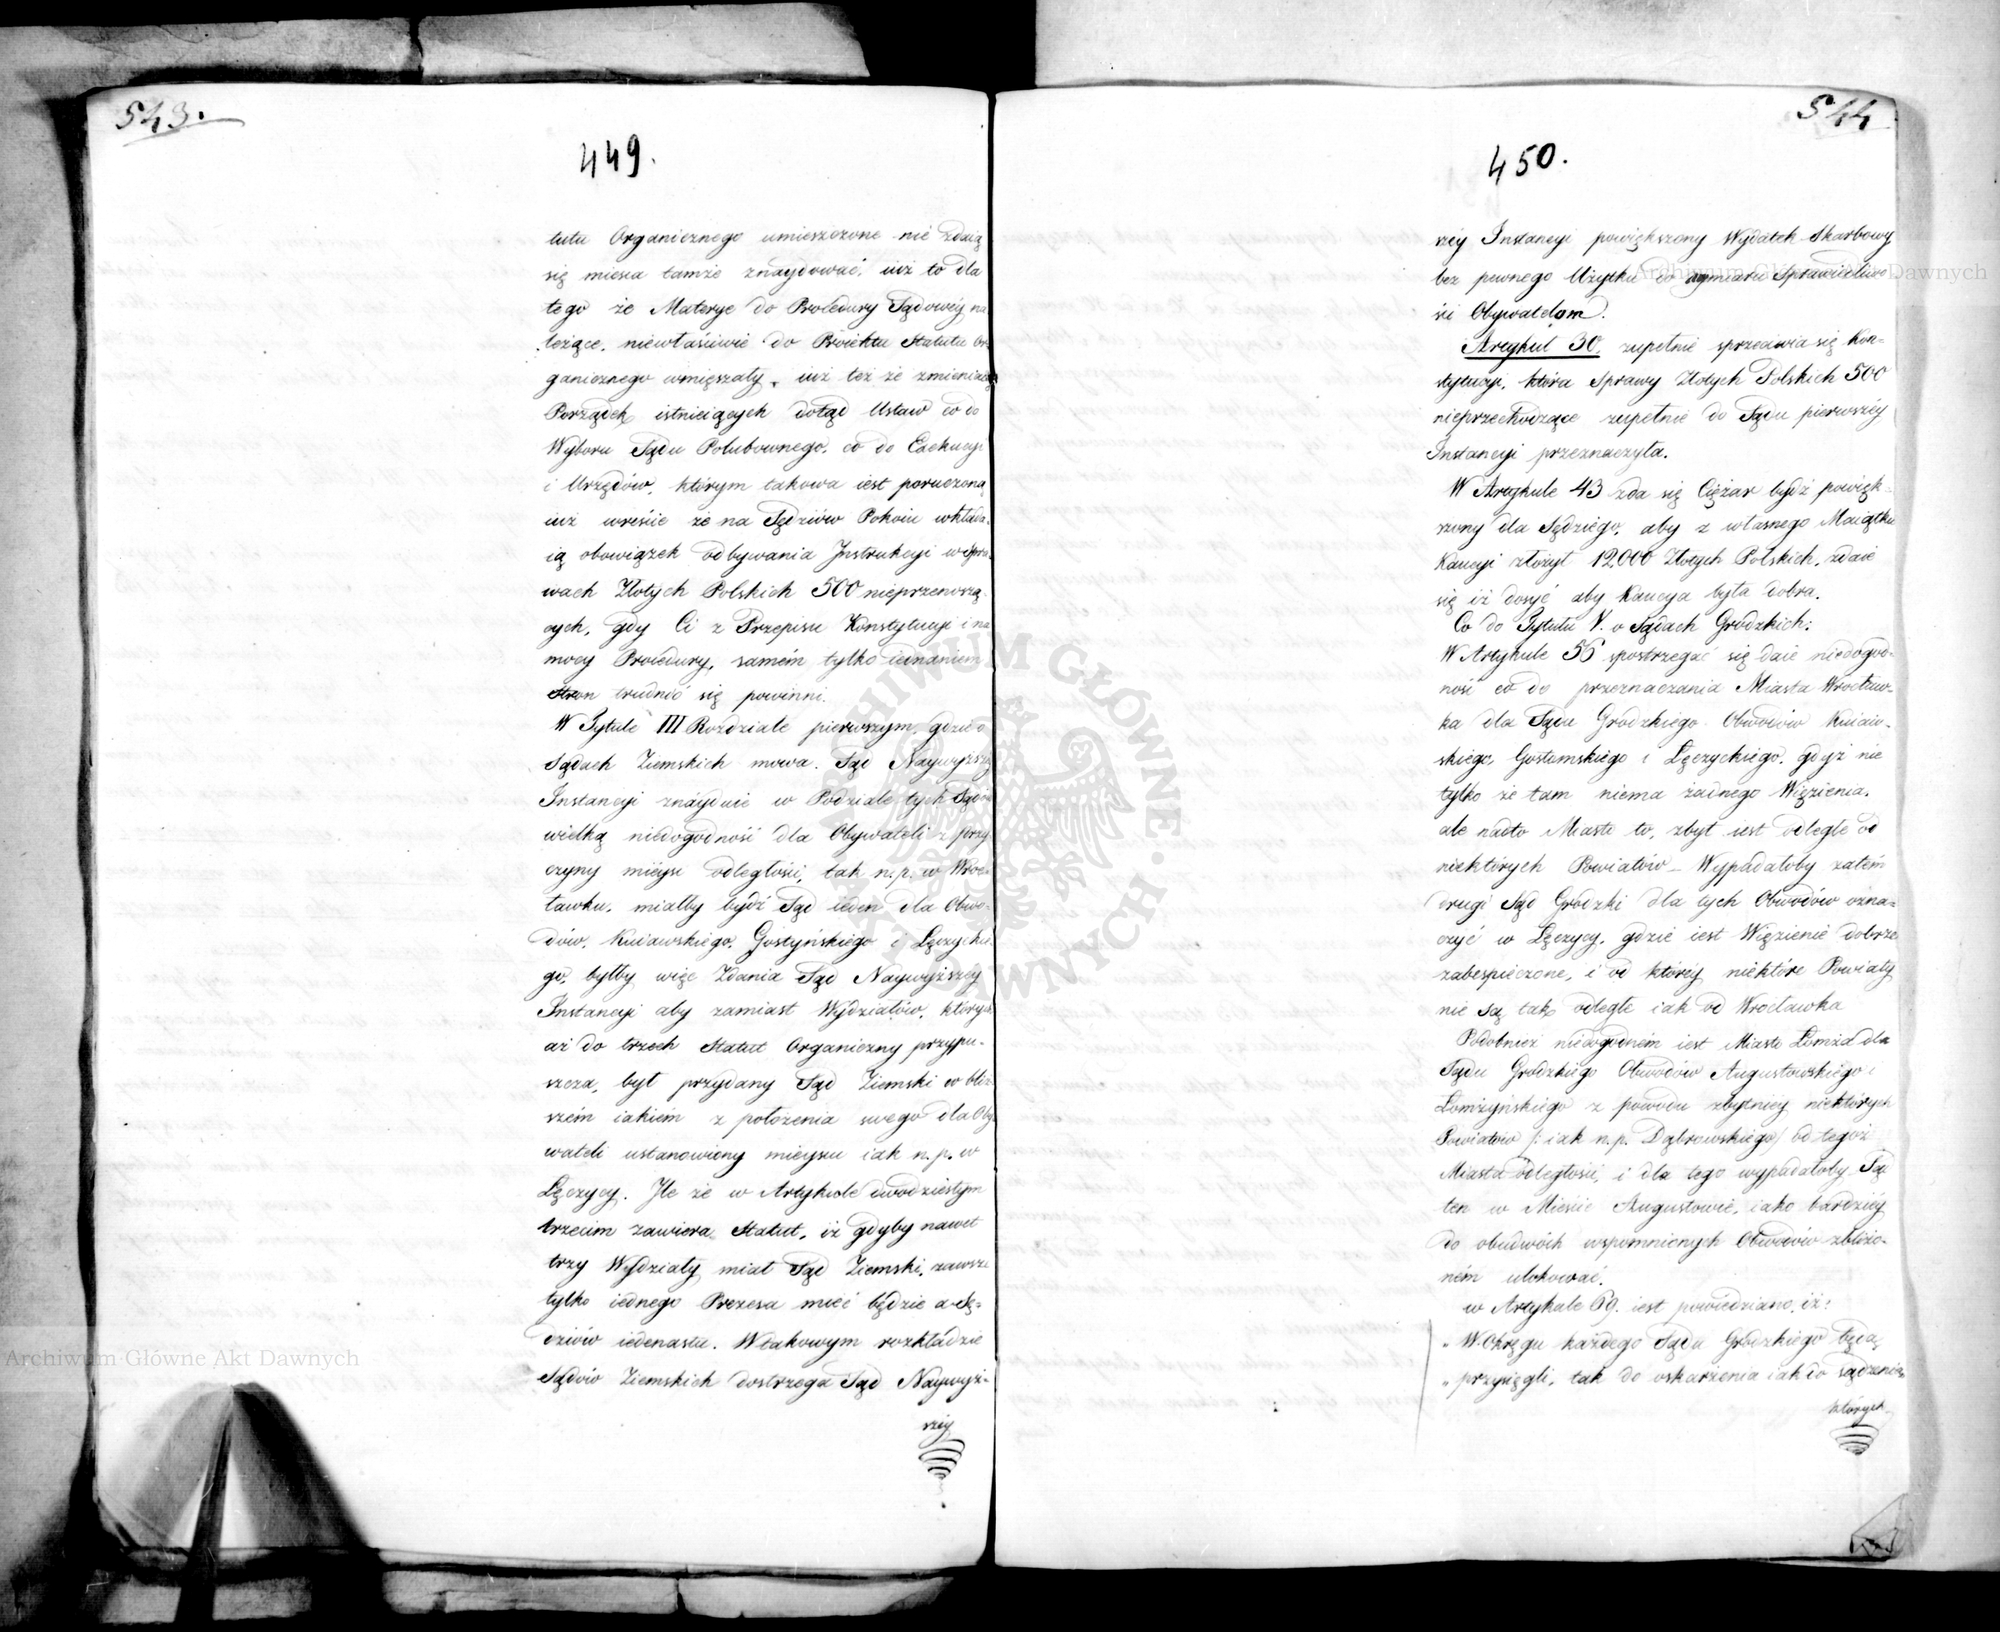 543.
449.
tutu Organicznego umieszczone nie zdaią
się mieysca tamże znaydować, iuż to dla
tego że Materye do Procedury Sądowéy na
leżące, niewłaściwie do Proiektu Statutu Or
ganicznego wmięszały, iuż też że zmieniaią
Porządek istnieiących dotąd Ustaw co do
Wyboru Sądu Polubownego, co do Exekucyi
i Urzędów, którym takowa iest poruczona
iuż wreście że na Sędziów Pokoiu wkłada-
ią obowiązek odbywania Instrukcyi w Spra-
wach Złotych Polskich 500 nieprzenoszą-
cych, gdy Ci z Przepisu Konstytucyi i na
mocy Procedury, samém tylko iednaniem
Stron trudnić się powinni.
W Tytule III Rozdziale pierwszym, gdzie o
Sądach Ziemskich mowa. Sąd Naywyższéy
Instancyi znayduie w Podziale tych Sądów
wielką niedogodność dla Obywateli z przy
czyny mieysc odległości, tak n.p. w Wroc-
ławku, miałby bydź Sąd ieden dla Obwo-
dów, Kuiawskiego, Gostyńskiego i Łęczyckie
go, byłby więc Zdania Sąd Naywyższéy
Instancyi aby zamiast Wydziałów, których
aż do trzech Statut Organiczny przypu-
szcza, był przydany Sąd Ziemski w bliż
szém iakiém z położenia swego dla Oby
wateli ustanowiony mieyscu iak n.p. w
Łęczycy. Ile że w Artykule dwudziestym
trzecim zawiera Statut, iż gdyby nawet
trzy Wydziały miał Sąd Ziemski, zawsze
tylko iednego Prezesa mieć będzie a Sę-
dziów iedenastu. W takowym rozkładzie
Sądów Ziemskich dostrzega Sąd Naywyż-
széy
544
450.
széy Instancyi powiększony Wydatek Skarbowy
bez pewnego Użytku co do wymiaru Sprawiedliwo
ści Obywatelom.
Artykuł 30. zupełnie sprzeciwia się Kon-
stytucyi, która Sprawy Złotych Polskich 500
nieprzechodzące zupełnie do Sądu pierwszéy
Instancyi przeznaczyła.
W Artykule 43 zda się Ciężar bydź powięk-
szony dla Sędziego, aby z własnego Maiątku
Kaucyi złożył 12,000 Złotych Polskich, zdaie
się iż dosyć aby Kaucya była dobra.
Co do Tytułu V. o Sądach Grodzkich:
W Artykule 56 spostrzegać się daie niedogod-
ność co do przeznaczania Miasta Wrocław-
ka dla Sądu Grodzkiego Obwodów Kuiaw-
skiego, Gostomskiego i Łęczyckiego, gdyż nie
tylko że tam niema żadnego Więzienia,
ale nadto Miasto to, zbyt iest odległe od
niektórych Powiatów – Wypadałoby zatém
drugi Sąd Grodzki dla tych Obwodów ozna-
czyć w Łęczycy, gdzie iest Więzienie dobrze
zabespieczone, i od któréy niektóre Powiaty
nie są tak odległe iak od Wrocławka
Podobnież niedogodném iest Miasto Łomża dla
Sądu Grodzkiego Obwodów Augustowskiego i
Łomżyńskiego z powodu zbytniéy niektórych
Powiatów /: iak n.p. Dąbrowskiego/ od tegoż
Miasta odległości, i dla tego wypadałoby Sąd
ten w Mieście Augustowie, iako bardziéy
do obudwóch wspomnionych Obwodów zbliżo-
ném ulokować.
w Artykule 69. iest powiedziano, iż:
„ W Okręgu każdego Sądu Grodzkiego będą
„ przysięgli, tak do oskarżenia iak do sądzenia,
których